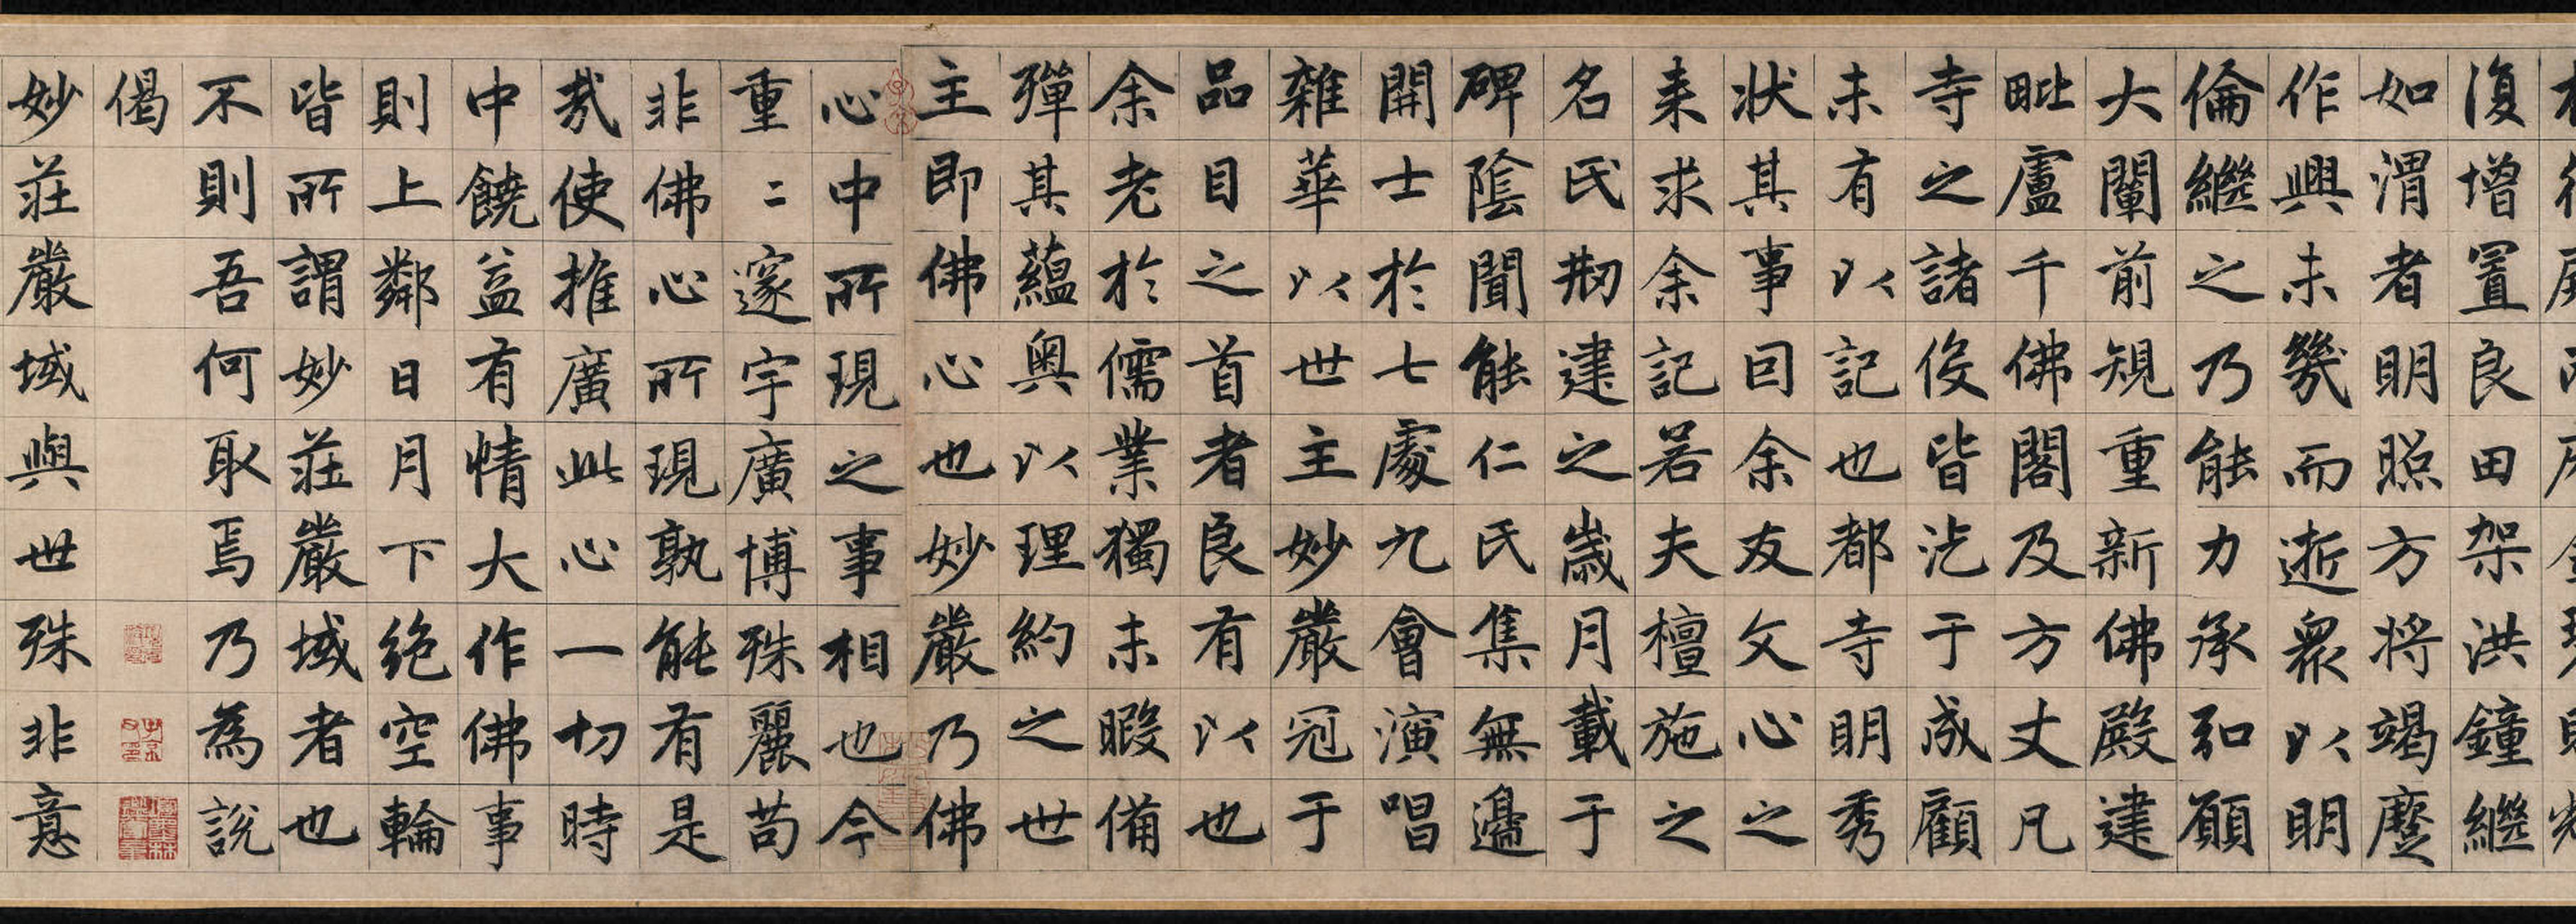 復增置良田架洪鐘繼
如渭者明照方將竭蹙
作興未幾而逝衆以明
倫繼之乃能力承弘願
大闡前規重新佛殿建
毗盧千佛閣及方丈凡
寺之諸役皆汔于成顧
未有以記也都寺明秀
狀其事囙余友文心之
来求余記若夫檀施之
名氏剏建之歲月載于
碑陰聞能仁氏集無邊
開士於七處九會演唱
雜華以世主妙嚴冠于
品目之首者良有以也
余老於儒業獨未暇備
殫其蘊奧以理約之世
主即佛心也妙嚴乃佛
心中所現之事相也今
重二邃宇廣博殊麗苟
非佛心所現孰能有是
哉使推廣此心一切時
中饒益有情大作佛事
則上鄰日月下絶空輪
皆所謂妙莊嚴域者也
不則吾何取焉乃為說
偈
妙莊嚴域與世殊非意